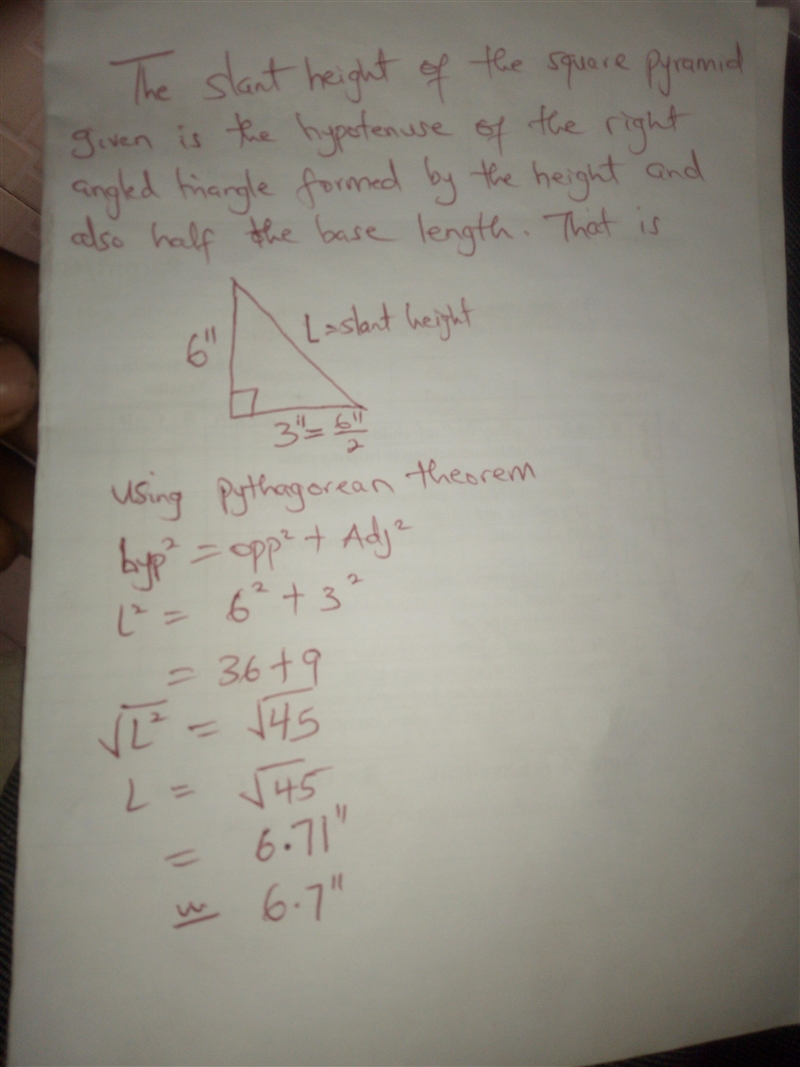 The slant height of the square pyramid
given is the hypotenuse of the right
angled triangle formed by the height and
also half the base length. That is
6" L = slant height
3" = 6"/2
Using pythagorean theorem
hyp² = opp² + Adj²
L² = 6² + 3²
= 36 + 9
√L² = √45
L = √45
= 6.71"
≃ 6.7"